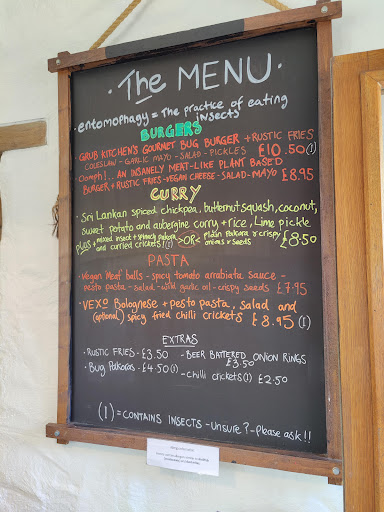 · The MENU ·
· entomophagy = The practice of eating
insects
BURGERS
· GRUB KITCHEN'S GOURMET BUG BURGER + RUSTIC FRIES
COLESLAW - GARLIC MAYO - SALAD - PICKLES £10.50 (I)
· Oomph!.. AN INSANELY MEAT-LIKE PLANT BASED
BURGER + RUSTIC FRIES - VEGAN CHEESE - SALAD - MAYO £8.95
CURRY
· Sri Lankan spiced chickpea, butternut squash, coconut,
sweet potato and aubergine curry + rice, Lime pickle
plus + mixed insect + spinach pakora
and curried crickets (I) -> OR < plain Pakora + crispy
onions + seeds £8.50
PASTA
· Vegan Meat balls - spicy tomato arrabiata sauce -
pesto pasta - salad - wild garlic oil - crispy seeds £7.95
· VEXo Bolognese + pesto pasta, salad and
(optional) spicy fried chilli crickets £8.95 (I)
EXTRAS
· RUSTIC FRIES - £3.50 - BEER BATTERED ONION RINGS
£3.50
· Bug Pakoras - £4.50 (I) - chilli crickets (I) £2.50
(I) = CONTAINS INSECTS - Unsure? - Please ask!!